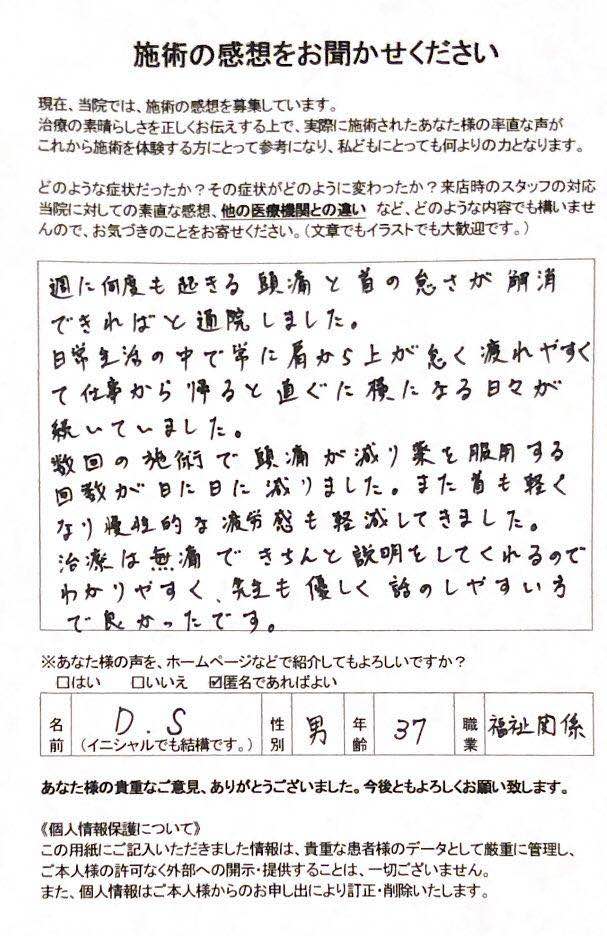 施術の感想をお聞かせください
現在、当院では、施術の感想を募集しています。
治療の素晴らしさを正しくお伝えする上で、実際に施術されたあなた様の率直な声が
これから施術を体験する方にとって参考になり、私どもにとっても何よりの力となります。
どのような症状だったか？その症状がどのように変わったか？来店時のスタッフの対応
当院に対しての素直な感想、他の医療機関との違い など、どのような内容でも構いませ
んので、お気づきのことをお寄せください。（文章でもイラストでも大歓迎です。）
週に何度も起きる頭痛と首の怠さが解消
できればと通院しました。
日常生活の中で常に肩から上が怠く疲れやすく
て仕事から帰ると直ぐに横になる日々が
続いていました。
数回の施術で頭痛が減り薬を服用する
回数が日に日に減りました。また首も軽く
なり慢性的な疲労感も軽減してきました。
治療は無痛できちんと説明をしてくれるので
わかりやすく、先生も優しく話のしやすい方
で良かったです。
※あなた様の声を、ホームページなどで紹介してもよろしいですか？
□はい □いいえ ☑匿名であればよい
名前 D.S （イニシャルでも結構です。） 性別 男 年齢 37 職業 福祉関係
あなた様の貴重なご意見、ありがとうございました。今後ともよろしくお願い致します。
《個人情報保護について》
この用紙にご記入いただきました情報は、貴重な患者様のデータとして厳重に管理し、
ご本人様の許可なく外部への開示・提供することは、一切ございません。
また、個人情報はご本人様からのお申し出により訂正・削除いたします。